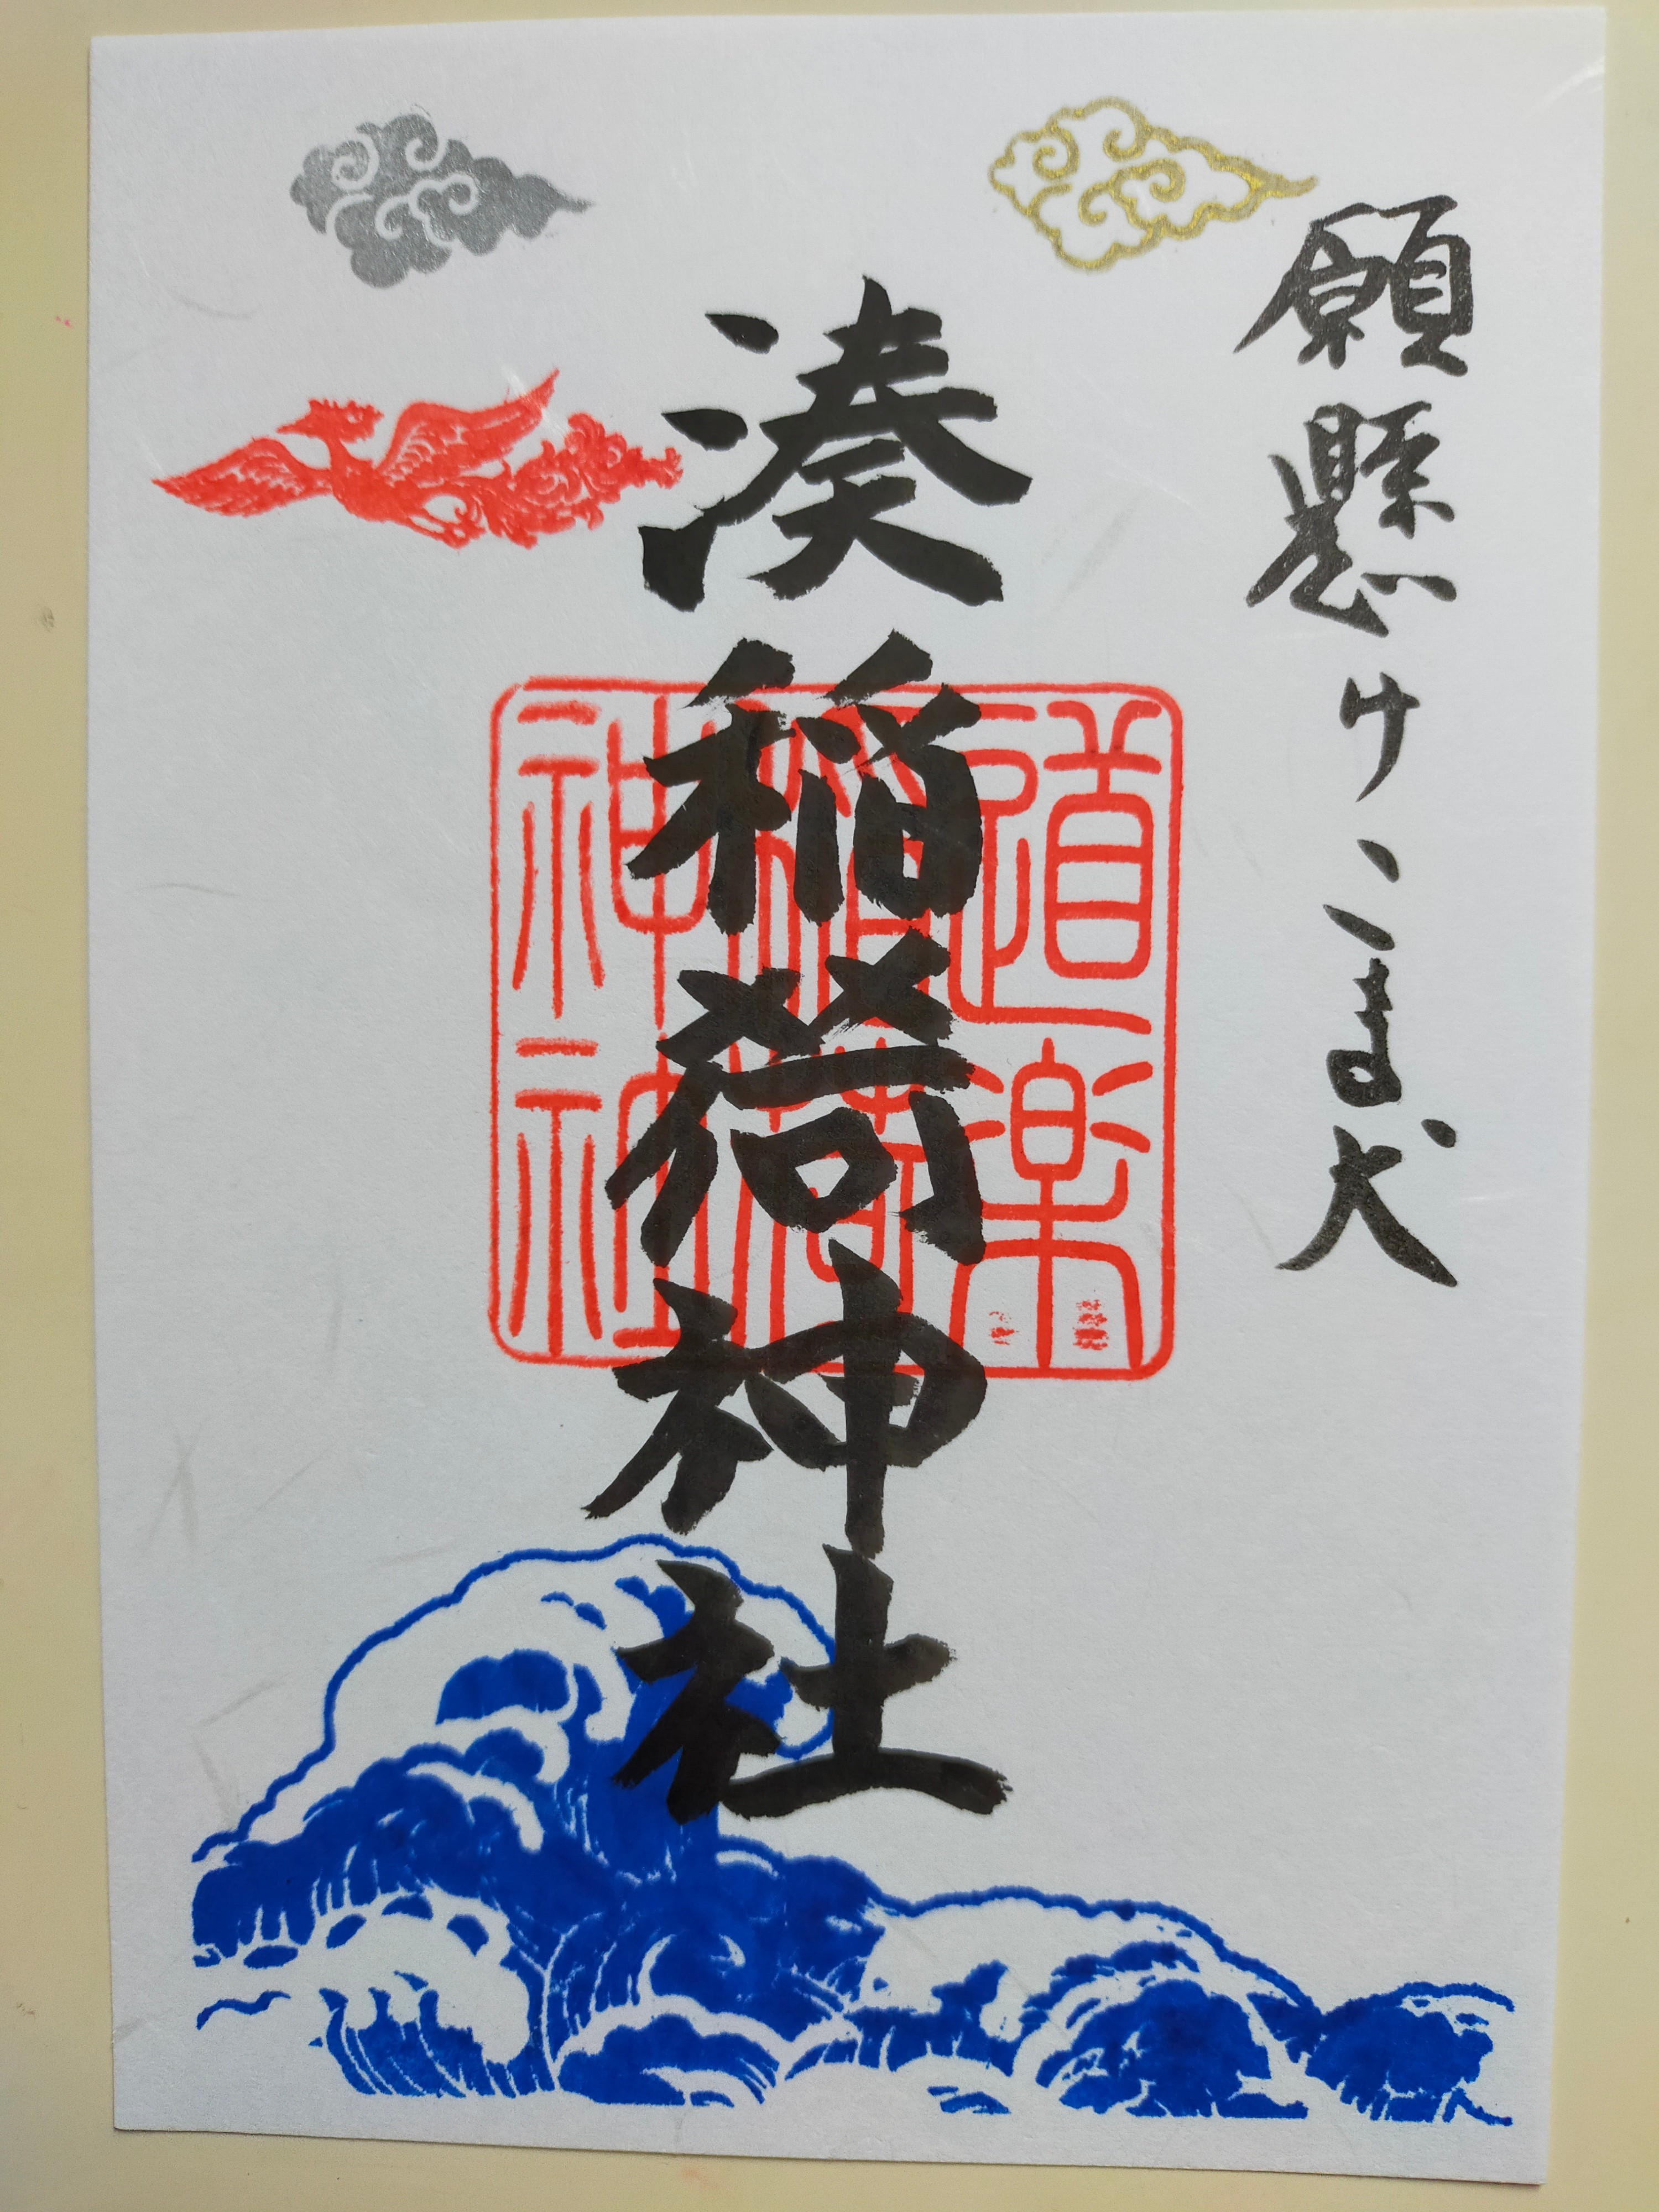 願懸けこま犬
湊稲荷神社
道楽
稲荷
神社